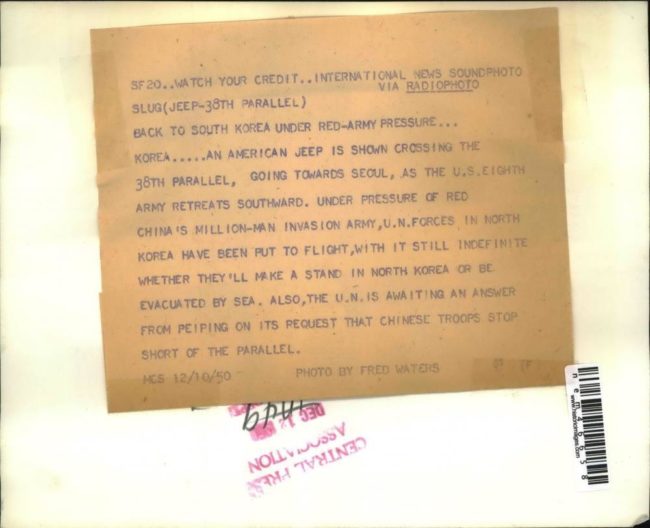 SF20..WATCH YOUR CREDIT..INTERNATIONAL NEWS SOUNDPHOTO
VIA RADIOPHOTO
SLUG(JEEP-38TH PARALLEL)
BACK TO SOUTH KOREA UNDER RED-ARMY PRESSURE...
KOREA.....AN AMERICAN JEEP IS SHOWN CROSSING THE
38TH PARALLEL, GOING TOWARDS SEOUL, AS THE U.S.EIGHTH
ARMY RETREATS SOUTHWARD. UNDER PRESSURE OF RED
CHINA'S MILLION-MAN INVASION ARMY,U.N.FORCES IN NORTH
KOREA HAVE BEEN PUT TO FLIGHT,WITH IT STILL INDEFINITE
WHETHER THEY'LL MAKE A STAND IN NORTH KOREA OR BE
EVACUATED BY SEA. ALSO,THE U.N.IS AWAITING AN ANSWER
FROM PEIPING ON ITS REQUEST THAT CHINESE TROOPS STOP
SHORT OF THE PARALLEL.
MCS 12/10/50 PHOTO BY FRED WATERS
DEC 12
CENTRAL PRESS
ASSOCIATION
nem46658